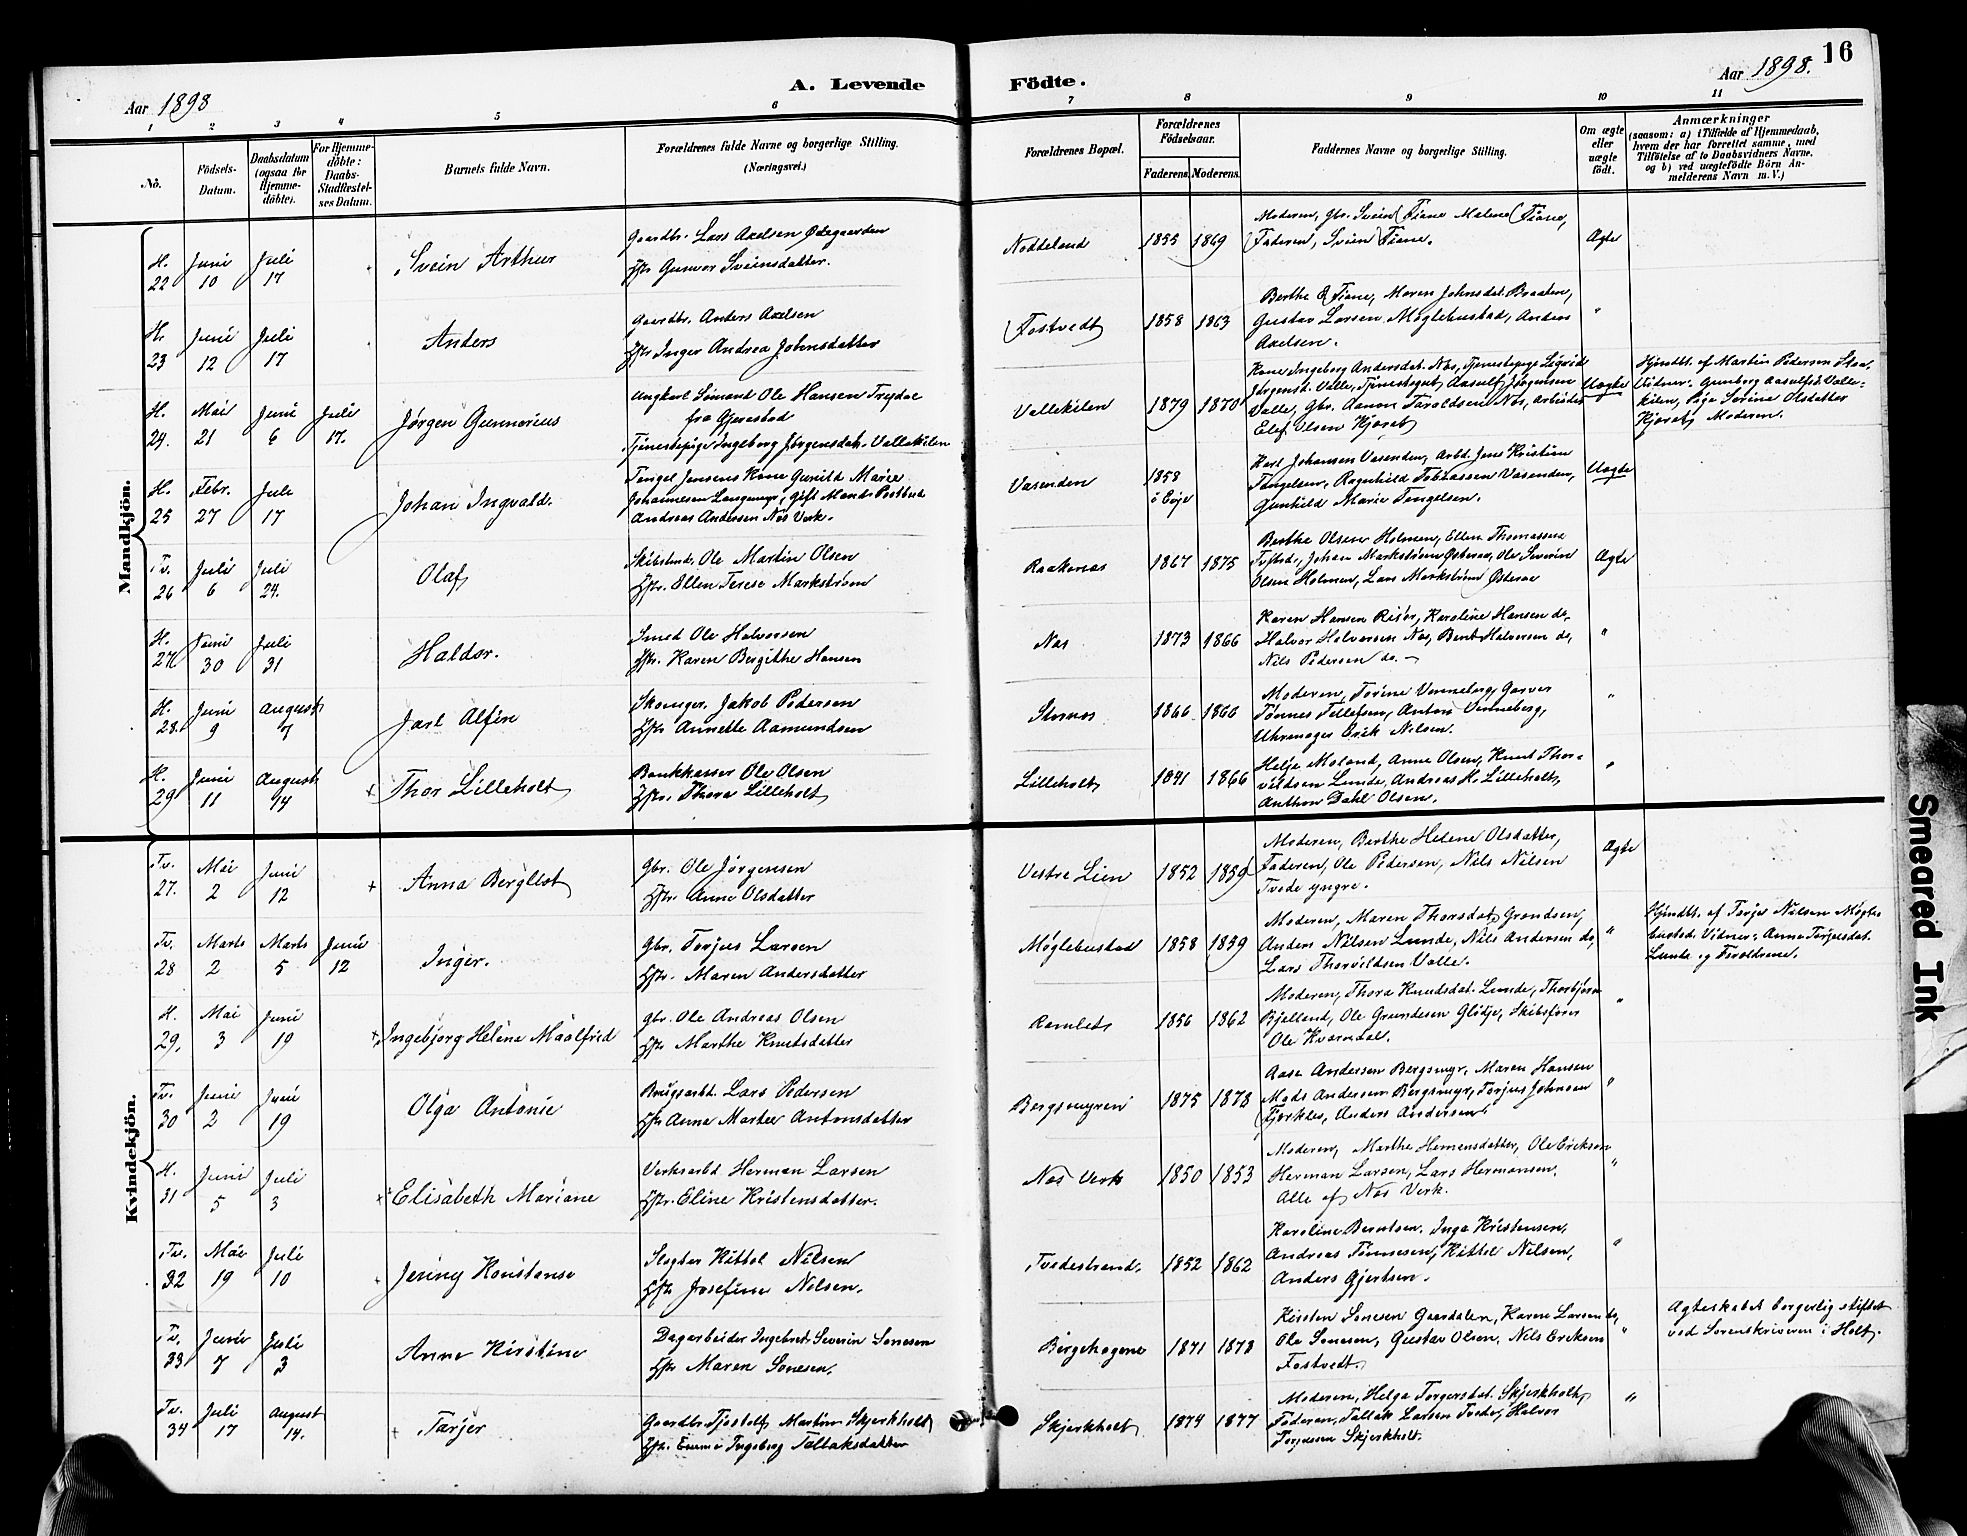 16
A. Levende Födte.
Aar 1898
Aar 1898.
1 2 3 4 5 6 7 8 9 10 11
No.
Födsels-Datum.
Daabsdatum (ogsaa for Hjemme-döbte).
For Hjemme-döbte: Daabs-Stadfæstel-ses Datum.
Barnets fulde Navn.
Forældrenes fulde Navne og borgerlige Stilling.
(Næringsvei.)
Forældrenes Bopæl.
Forældrenes Födselsaar.
Faderens. Moderens.
Faddernes Navne og borgerlige Stilling.
Om ægte eller uægte födt.
Anmærkninger
(saasom: a) i Tilfælde af Hjemmedaab,
hvem der har forrettet samme, med
Tilföielse af to Daabsvidners Navne,
og b) ved uægtefödte Börn An-
melderens Navn m. V.)
Mandkjön.
H. 22 Juni 10 Juli 17 Svein Arthur
Gaardbr. Lars Axelsen Ødegaarden
Hstr. Gunvor Sveinsdatter.
Noddeland 1855 1869
Moderen, Gbr. Svein Fiane Malene Fiane,
Faderen, Svein Fiane.
Ægte
H. 23 Juni 12 Juli 17 Anders
Gaardbr. Anders Axelsen
Hstr Inger Andrea Johnsdatter
Fostvedt 1858 1863
Berthe Fiane, Maren Johnsdat. Braaten,
Gustav Larsen Møglebustad, Anders
Axelsen.
"
H. 24. Mai 21 Juni 6 Juli 17. Jørgen Gunnerius
Ungkarl Sømand Ole Hansen Trydal
fra Gjerestad
Tjenestepige Ingeborg Jörgensdat. Vallekilen
Vallekilen 1879 1870
Kone Ingeborg Andersdat. Næs, Tjenestepige Sigrid
Jørgensd. Valle, Tjenestegut Aasulf Jørgensen
Valle, Gbr. Aanon Taraldsen Næs, Arbeider
Elef Olsen
Uægte
Hjmdbt. af Martin Pedersen
Vidner: Gunborg Aasulfsd. Valle-
kilen, Pige Serine Olsdatter
Moderen.
H. 25 Febr. 27 Juli 17 Johan Ingvald.
Tengel Jensens Kone Gunild Marie
Johannesen Langmyr, Gift Mand Postbud
Andreas Andersen Næs Verk.
Vasenden 1858
Karl Johansen Vasenden, Arbd. Jens Kristian
Tengelsen, Ragnhild Tobiassen Vasenden,
Gunhild Marie Tengelsen.
Uægte
Tv. 26 Juli 6 Juli 24. Olaf
Ole Martin Olsen
Hstr. Ellen Terese Markström
1867 1875
Berthe Olsen Holmen, Ellen Thomassen
Johan Markström Østeraa, Ole Severin
Olsen Holmen, Lars Markström Østeraa
Ægte
H. 27 Juni 30 Juli 31 Haldor.
Smed Ole Halvorsen
Hstr. Karen Bergithe Hansen
Næs 1873 1866
Karen Hansen Risør, Karoline Hansen do,
Halvor Halvorsen Næs, Bent Halvorsen do,
Nils Pedersen do.
"
H. 28. Juni 9 August 7 Jarl Alfin
Jakob Pedersen
Hstr Annette Aamundsen
1866 1866
Moderen, Torine Venneberg, Garver
Tønnes Tellefsen, Anton Venneberg,
Uhrmager Erik Nilsen.
"
H. 29 Juni 11 August 14 + Thor Lilleholt
Bankkasser Ole Olsen
Hstr. Thora Lilleholt
Lilleholt 1841 1866
Helje Moland, Anne Olsen, Knut Thor-
vildsen Lunde, Andreas H. Lilleholt,
Anthon Dahl Olsen.
"
Kvindekjön.
Tv. 27. Mai 2 Juni 12 + Anna Bergliot
Gbr. Ole Jørgensen
Hstr. Anne Olsdatter
Vestre Lien 1852 1859
Moderen, Berthe Helene Olsdatter,
Faderen, Ole Pedersen, Nils Nilsen
Tvede yngre.
Ægte
Tv. 28 Marts 2 Marts 5 Juni 12 Inger.
Gbr. Torjus Larsen
Hstr. Maren Andersdatter
Møglebustad 1858 1859
Moderen, Maren Thorsdat, Grondsen,
Anders Nilsen Lunde, Nils Andersen do,
Lars Thorvildsen Valle.
"
Hjmdbt. af Torje Nilsen Mögle-
bustad. Vidner: Anne Torjusdat.
Lunde og Foreldrene.
H. 29. Mai 3 Juni 19 + Ingebjorg Helene Maalfrid
Gbr. Ole Andreas Olsen
Hstr Marthe Knutsdatter
Ramlets 1856 1862
Moderen, Thora Knudsdat. Lunde, Thorbjørn
Bjelland, Ole Grundesen Glödje, Skibsfører
Ole Kvarndal.
"
Tv. 30 Juni 2 Juni 19 Olga Antonie
Brugsarbt. Lars Pedersen
Hstr Anna Marthe Antonsdatter
Bergsmyren 1875 1878
Aase Andersen Bergsmyr, Maren Hansen
Mads Andersen Bergsmyr, Torjus Johnsen
Anders Andersen
"
H. 31 Juni 5 Juli 3 + Elisabeth Mariane
Verksarbd Herman Larsen
Hstr. Eline Kristensdatter.
Næs Verk 1850 1853
Moderen, Marthe Hermensdatter, Ole Eriksen
Herman Larsen, Lars Hermansen.
Alle af Næs Verk.
"
Tv. 32 Mai 19 Juli 10 Jenny Konstanse
Slagter Kittel Nilsen
Hstr Josefine Nilsen.
Tvedestrand. 1852 1862
Karoline Berntsen, Inga Kristensen,
Andreas Tønnesen, Kittel Nilsen,
Anders Gjertsen.
"
Tv. 33 Juni 7 Juli 3 Anne Kirstine
Dagarbeider Ingebret Severin Sonesen
Hstr Maren Sonesen.
Bergehagene 1871 1873
Kirsten Sonesen Gaasdalen, Karen Larsen do,
Ole Sonesen, Gustav Olsen, Nils Eriksen
Fostvedt.
"
Ægteskabet borgerlig stiftet
ved Sorenskriveren i Holt.
Tv. 34 Juli 17 August 14. + Tarjer
Gaardbr. Tjostolf Martin Skjerkholt
Hstr. Emma Ingeborg Tallaksdatter
Skjerkholt 1874 1877
Moderen, Helga Torgersdat. Skjerkholt,
Faderen, Tallak Larsen Tvede, Halvor
Torjusen Skjerkholt.
"
Smeared Ink